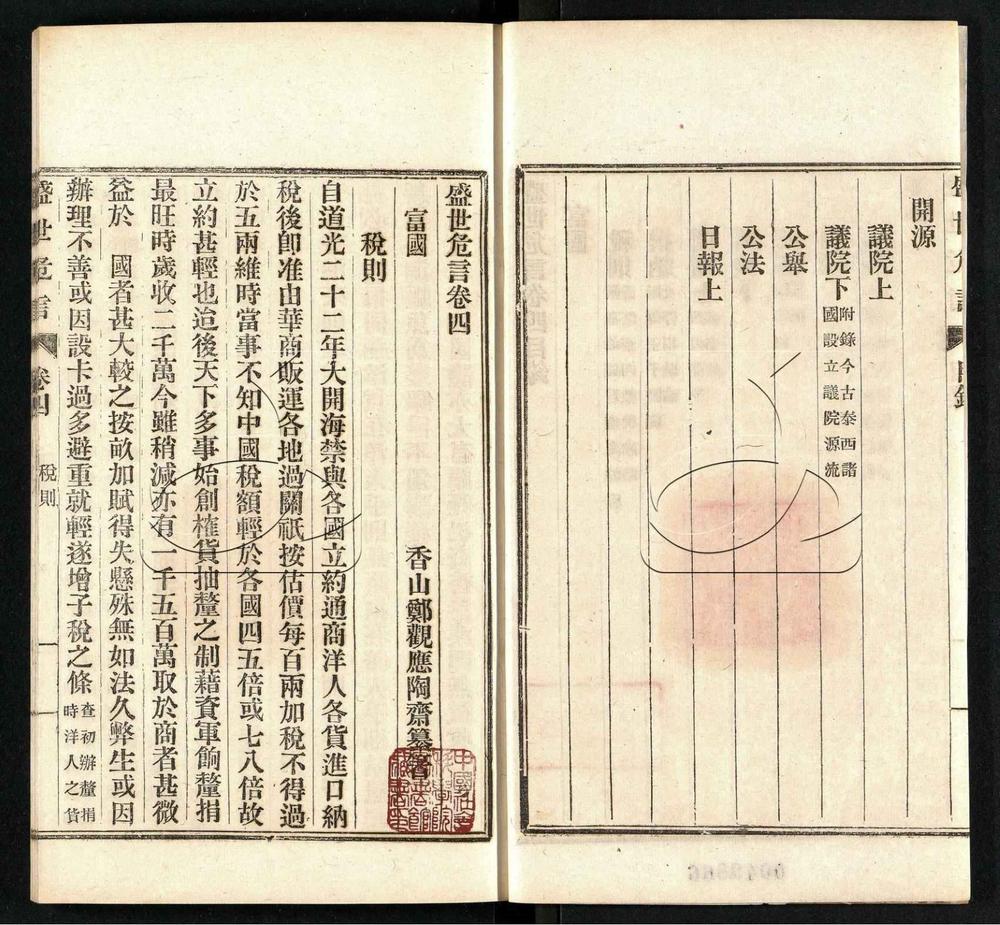 開源
議院上
議院下 附錄今古泰西諸
國設立議院源流
公舉
公法
日報上
盛世危言卷四
富國
香山鄭觀應陶齋纂著
稅則
自道光二十二年大開海禁與各國立約通商洋人各貨進口納
稅後卽准由華商販運各地過關祇按估價每百兩加稅不得過
於五兩維時當事不知中國稅額輕於各國四五倍或七八倍故
立約甚輕也迨後天下多事始創榷貨抽釐之制藉資軍餉釐捐
最旺時歲收二千萬今雖稍減亦有一千五百萬取於商者甚微
益於 國者甚大較之按畝加賦得失懸殊無如法久弊生或因
辦理不善或因設卡過多避重就輕遂增子稅之條 查初辦釐捐
時洋人之貨
盛世危言 卷四 稅則